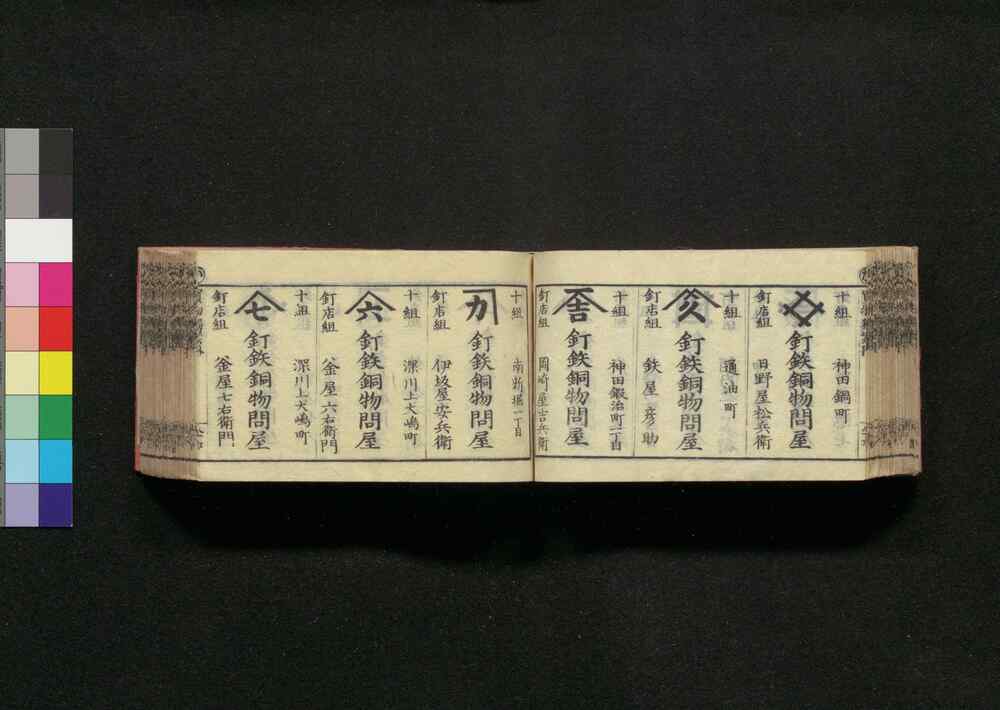 十組
神田鍋町
釘鉄銅物問屋
釘店組
日野屋松兵衛
十組
通油町
釘鉄銅物問屋
釘店組
鉄屋彦助
十組
神田鍛治町二丁目
釘鉄銅物問屋
釘店組
岡崎屋吉兵衛
十組
南新堀一丁目
カ
釘鉄銅物問屋
釘店組
伊坂屋安兵衛
十組
深川上大嶋町
六
釘鉄銅物問屋
釘店組
釜屋六右衛門
十組
深川上大嶋町
七
釘鉄銅物問屋
釘店組
釜屋七右衛門